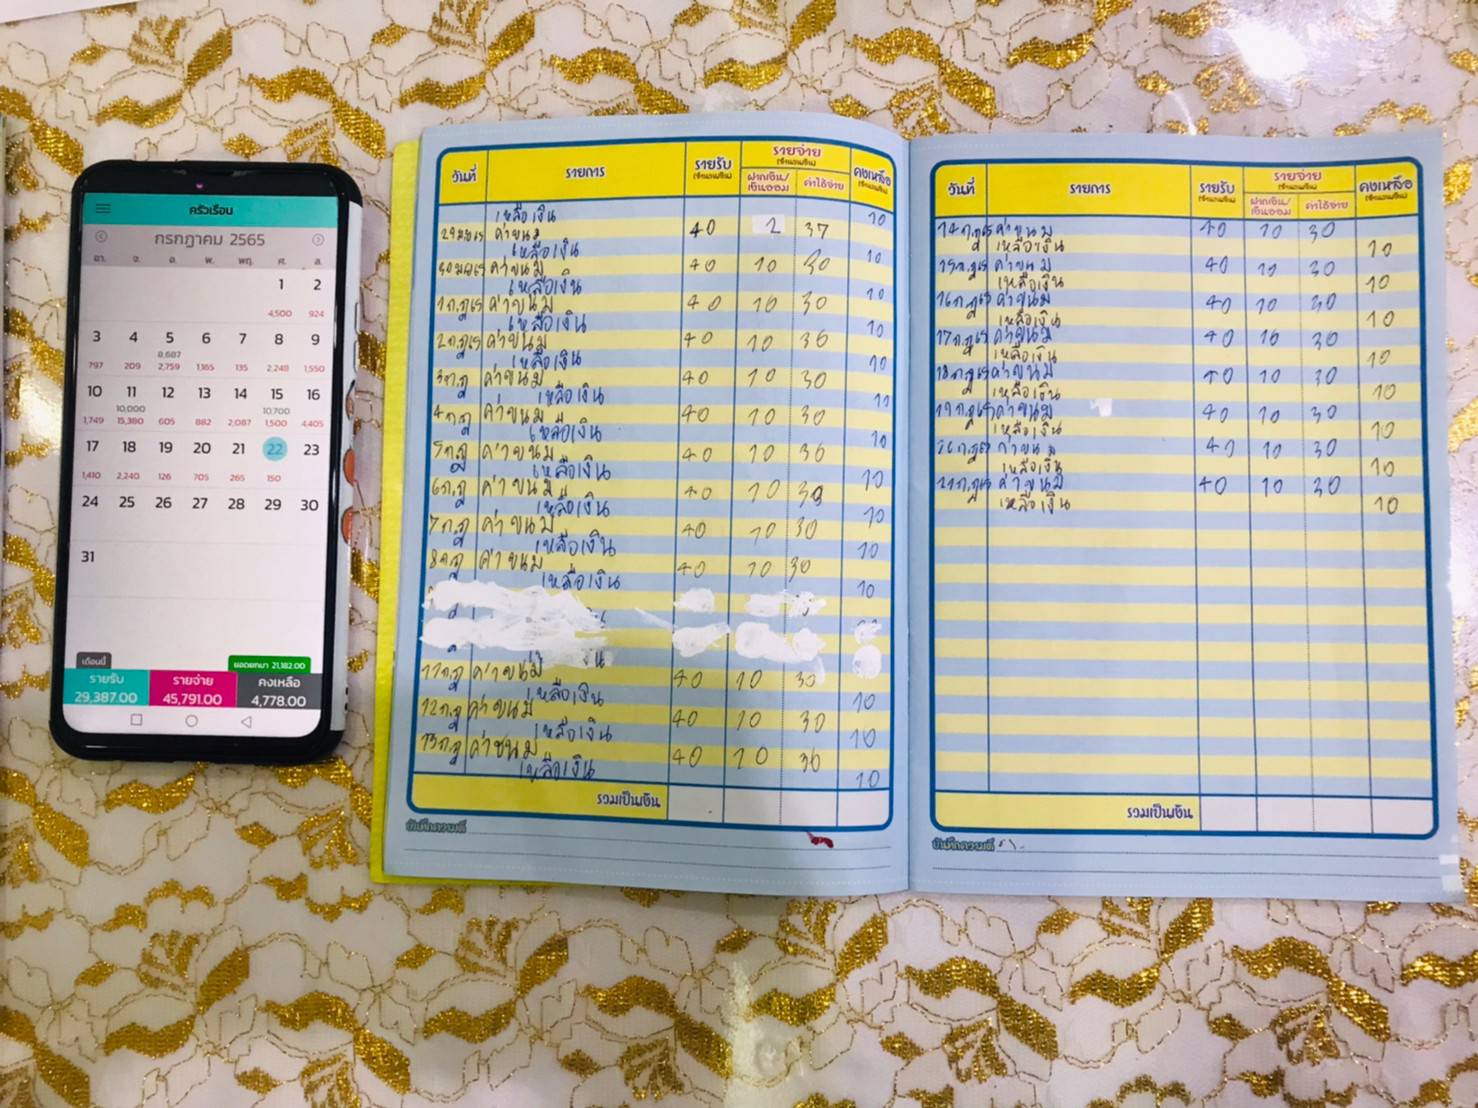 ครัวเรือน
กรกฎาคม 2565
อา. จ. อ. พ. พฤ. ศ. ส.
1 2
4,500 924
3 4 5 6 7 8 9
8,687
797 209 2,759 1,165 135 2,248 1,550
10 11 12 13 14 15 16
10,000 10,700
1,749 15,380 605 882 2,087 1,500 4,405
17 18 19 20 21 22 23
1,410 2,240 126 705 265 150
24 25 26 27 28 29 30
31
เดือนนี้ ยอดยกมา 21,182.00
รายรับ รายจ่าย คงเหลือ
29,387.00 45,791.00 4,778.00
วันที่ รายการ รายรับ (จำนวนเงิน) รายจ่าย (จำนวนเงิน) คงเหลือ (จำนวนเงิน)
ฝากเงิน/เงินออม ค่าใช้จ่าย
เหลือเงิน 10
ค่าขนม 40 2 37
เหลือเงิน 10
ค่าขนม 40 10 30
เหลือเงิน 10
1 ก.ฎ 65 ค่าขนม 40 10 30
เหลือเงิน 10
2 ก.ฎ 65 ค่าขนม 40 10 30
เหลือเงิน 10
3 ก.ฎ ค่าขนม 40 10 30
เหลือเงิน 10
4 ก.ฎ ค่าขนม 40 10 30
เหลือเงิน 10
5 ก.ฎ ค่าขนม 40 10 30
เหลือเงิน 10
6 ก.ฎ ค่าขนม 40 10 30
เหลือเงิน 10
7 ก.ฎ ค่าขนม 40 10 30
เหลือเงิน 10
8 ก.ฎ ค่าขนม 40 10 30
เหลือเงิน 10
11 ก.ฎ ค่าขนม 40 10 30
เหลือเงิน 10
12 ก.ฎ ค่าขนม 40 10 30
เหลือเงิน 10
13 ก.ฎ ค่าขนม 40 10 30
เหลือเงิน 10
รวมเป็นเงิน
บันทึกความดี
วันที่ รายการ รายรับ (จำนวนเงิน) รายจ่าย (จำนวนเงิน) คงเหลือ (จำนวนเงิน)
ฝากเงิน/เงินออม ค่าใช้จ่าย
14 ก.ฎ ค่าขนม 40 10 30
เหลือเงิน 10
15 ก.ฎ 65 ค่าขนม 40 10 30
เหลือเงิน 10
16 ก.ฎ 65 ค่าขนม 40 10 30
เหลือเงิน 10
17 ก.ฎ 65 ค่าขนม 40 10 30
เหลือเงิน 10
18 ก.ฎ 65 ค่าขนม 40 10 30
เหลือเงิน 10
19 ก.ฎ 65 ค่าขนม 40 10 30
เหลือเงิน 10
ค่าขนม 40 10 30
เหลือเงิน 10
ค่าขนม 40 10 30
เหลือเงิน 10
รวมเป็นเงิน
บันทึกความดี